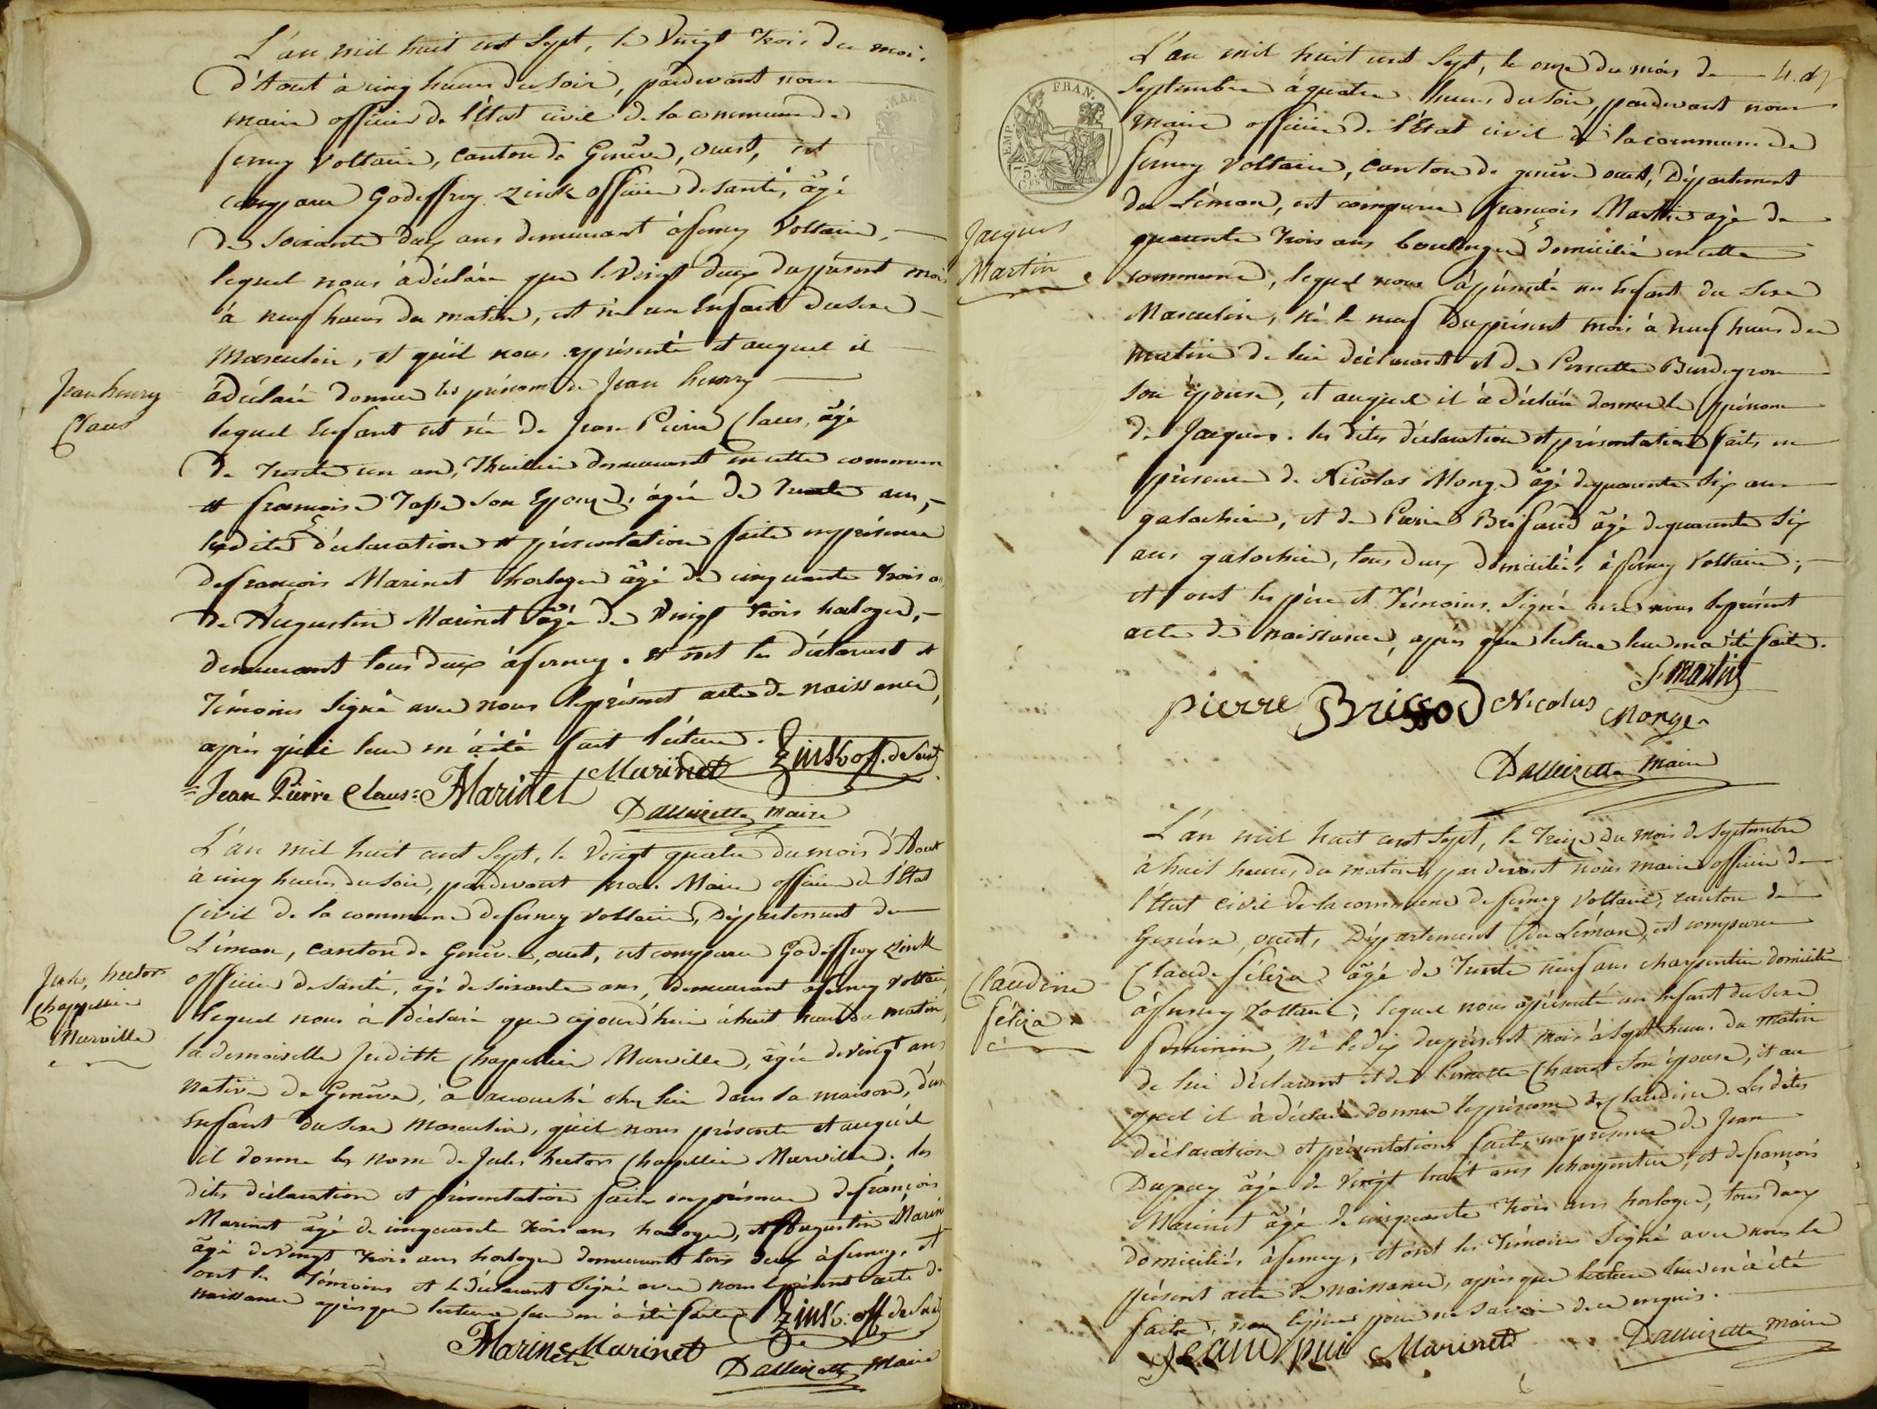 L'an mil huit cent Sept, le Vingt trois du mois
d'Aout à cinq heures du soir, pardevant nous
maire officier de l'État civil de la commune de
ferney Voltaire, canton de Genêve, ouest, est
comparu Godeffroy Zink officier de santé, âgé
de soixante deux ans demeurant à ferney Voltaire,
lequel nous à déclaré que le Vingt deux du présent mois
à neuf heures du matin, est né un Enfant du sexe
Masculin, et qu'il nous apprésenté et auquel il
à déclaré donner les prénoms de Jean henry
lequel Enfant est né de Jean Pierre Claus, âgé
de trente un an, demeurant en cette commune
et françoise son Epouse, âgée de trente ans,
les dites déclaration et présentation faite en présence
de françois Marinet horloger âgé de cinquante trois
de Augustin Marinet âgé de Vingt trois horloger,
demeurant tous deux à ferney. et ont les déclarant et
témoins Signé avec nous le présent acte de naissance,
après qu'il leur en à été fait lecture.
Jean henry
Claus
Zink off. de Santé
Jean Pierre Claus Marinet Marinet
Dallizette maire
L'an mil huit cent Sept, le Vingt quatre du mois d'Aout
à cinq heures du soir, pardevant nous Maire officier de l'État
Civil de la commune de ferney Voltaire, Département du
Léman, canton de Genêve, ouest, est comparu Godeffroy Zink
officier de santé, âgé de soixante ans, demeurant à ferney Voltaire
lequel nous à déclaré que aujourd'hui à huit heures du matin,
la demoiselle Judith Chappellier Murville, âgée de vingt ans
native de Genêve, à accouché chez lui dans la maison, d'un
Enfant du sexe masculin, qu'il nous présente et auquel
il donne les nom de Jules hector Chapellier Murville. les
dites déclaration et présentation faite en présence de françois
Marinet âgé de cinquante trois ans horloger, et Augustin Marin
âgé de vingt trois ans horloger demeurant tous deux à ferney, et
ont les témoins et le déclarant Signé avec nous le présent acte de
naissance après que lecture leur en à été faite
Jules, hector
Chappellier
Murville
Zink off de Santé
Marinet Marinet
Dallizette Maire
FRAN.
TEMP
75
L'an mil huit cent Sept, le onze du mois de
Septembre à quatre heures du soir, pardevant nous
Maire officier de l'État civil de la commune de
ferney Voltaire, canton de genêve ouest, Département
du Léman, est comparu françois Martin agé de
quarente trois ans boulanger domicilié en cette
commune, lequel nous à présenté un Enfant du sexe
Masculin, né le neuf du présent mois à neuf heures du
matin de lui déclarant et de Pernette
son épouse, et auquel il à déclaré donner le prénom
de Jacques. les dites déclaration et présentation faits en
présence de Nicolas Monge âgé de quarente six ans
galochier, et de Pierre Brifaud âgé de quarente Six
ans galochier, tous deux domiciliés à ferney Voltaire;
et ont les père et témoins Signé avec nous le présent
acte de naissance, après que lecture leur en a été faite.
Jacques
Martin
f. martin
Pierre Brissod Nicolas
Monge
Dallizette Maire
L'an mil huit cent Sept, le treize du mois de Septembre
à huit heures du matin, par devant nous maire officier de
l'État civil de la commune de ferney Voltaire, canton de
Genêve, ouest, Département du Léman, est comparu
Claude féliza âgé de Trente neuf ans charpentier domicilié
à ferney Voltaire, lequel nous à présenté un Enfant du sexe
féminin, né le dix du présent mois à Sept heures du matin
de lui déclarant et de Pernette son épouse, et au
quel il à déclaré donner le prénom de Claudine. Les dites
déclaration et présentations faites en présence de Jean
Dupuy âgé de Vingt huit ans charpentier, et de françois
Marinet âgé de cinquante trois ans horloger, tous deux
domiciliés à ferney, et ont les témoins Signé avec nous le
présent acte de naissance, après que lecture leur en à été
faite, non le père pour ne savoir de ce enquis.
Claudine
féliza
Jean Dpui Marinet
Dallizette maire